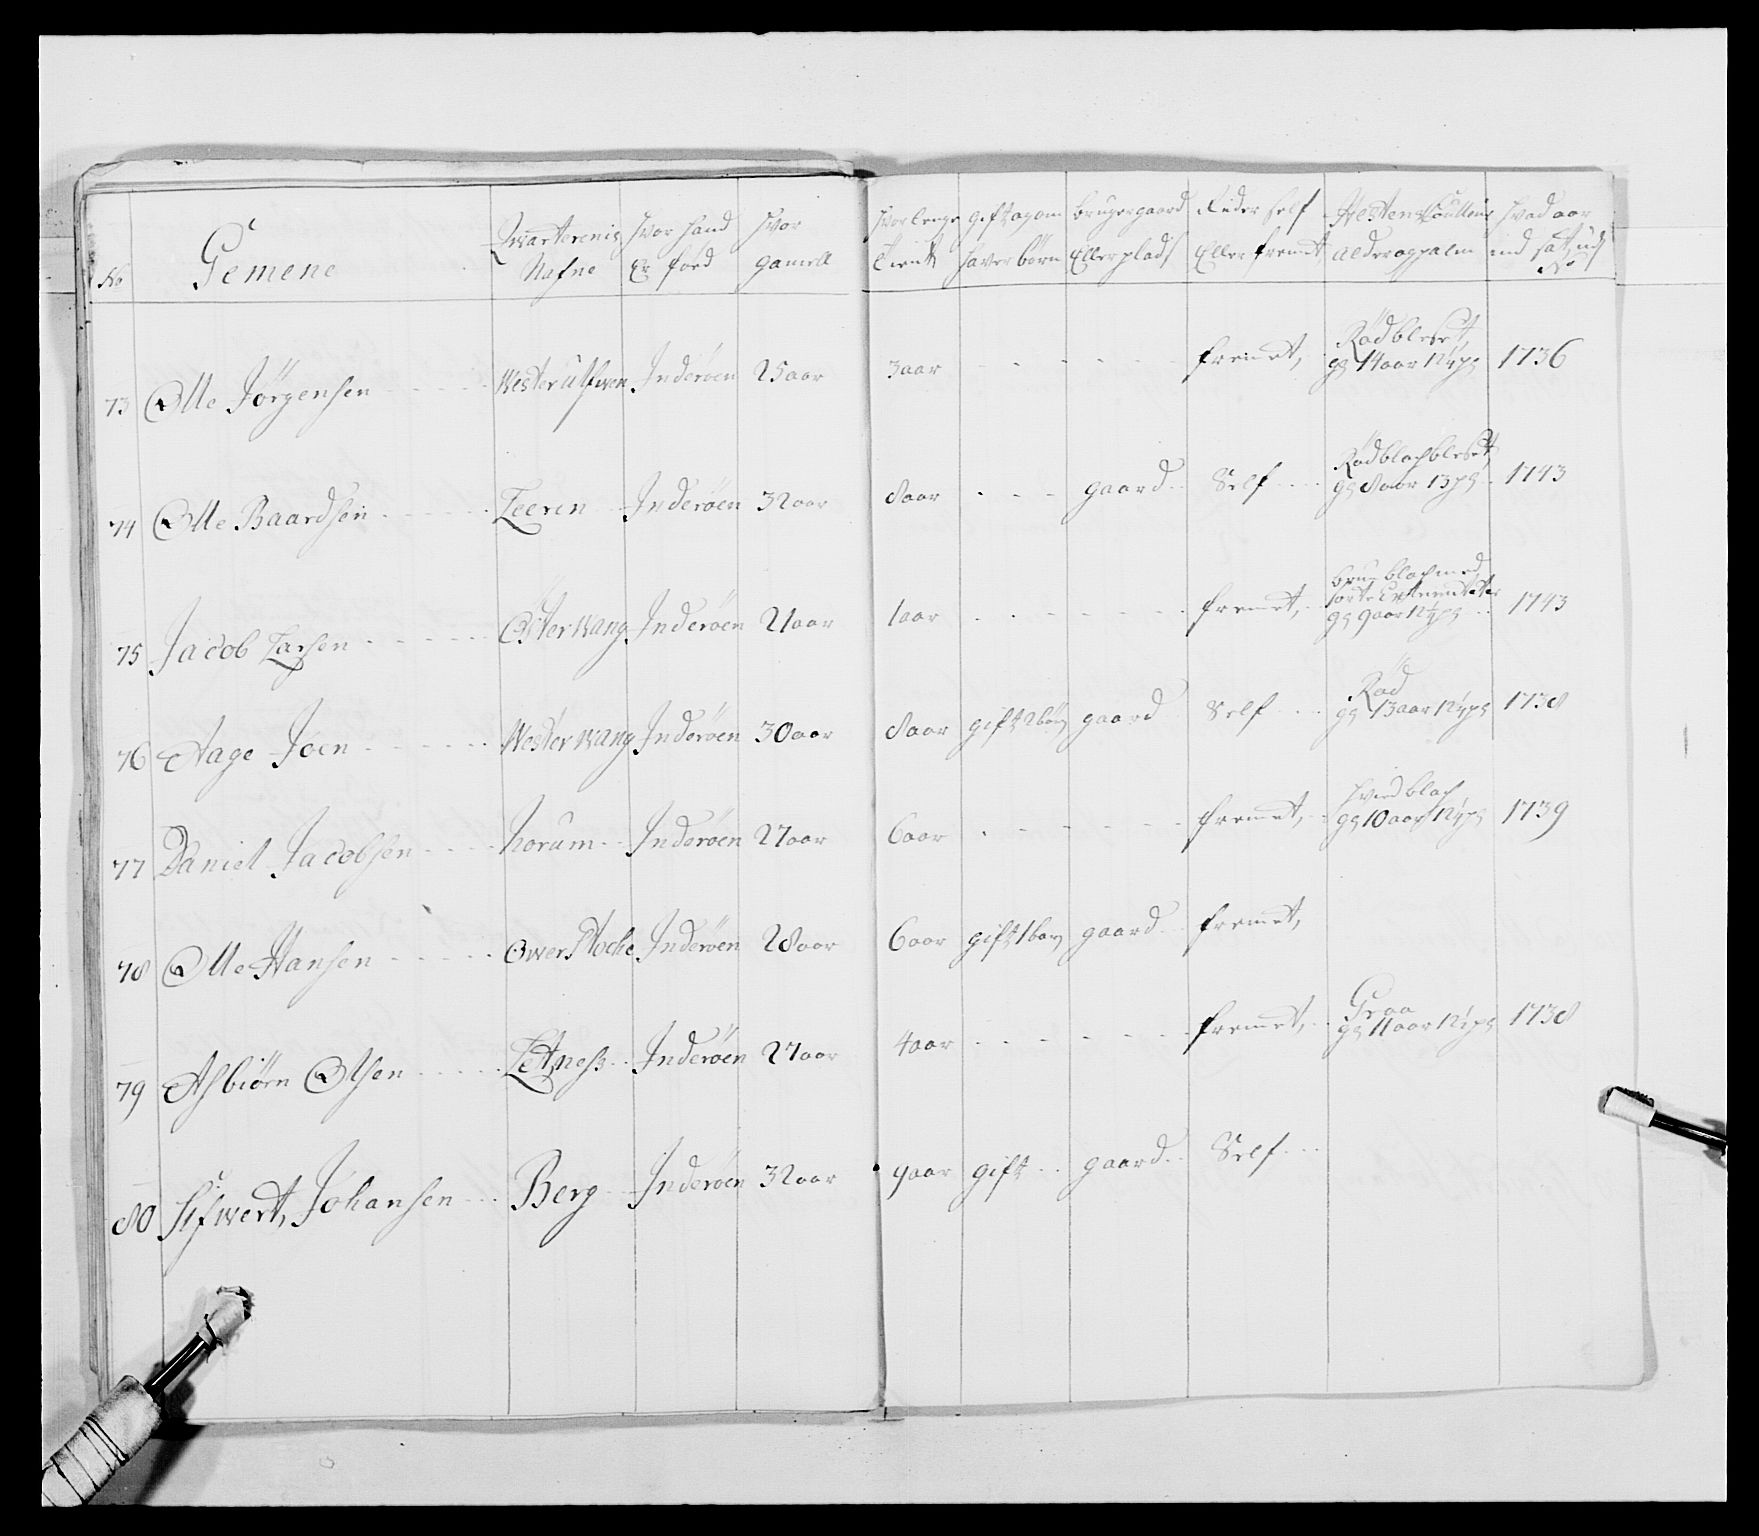 No Gemene Qvarterenis Nafne Hvor hand Er föed Hvor gamell Hvor lenge tient gift og om haver börn bruger gaard Eller plads Rider self Eller fremt Hestens Coulleur alder og palm hvad aar ind satt
73 Olle Jörgensen Wester Ulfwen Inderöen 25 aar 3 aar fremet, Röd bleset, gs 14 aar 12 1/2 ps 1736
74 Olle Baardsen Leeren Inderöen 32 aar 8 aar gaard Self Rödblach bleset, gs 8 aar 13 ps 1743
75 Jacob Larsen Österwang Inderöen 21 aar 1 aar fremet, brun blach med sorte gs 9 aar 12 1/2 ps 1743
76 Aage Joen Wester wang Inderöen 30 aar 8 aar gift 2 börn gaard Self Röd gs 13 aar 12 1/2 ps 1738
77 Daniel Jacobsen horum Inderöen 27 aar 6 aar fremet, hvid blach gs 10 aar 12 1/2 ps 1739
78 Olle Hansen Ower Stoche Inderöen 28 aar 6 aar gift 1 barn gaard fremet,
79 Asbiörn Olsen Letnesz Inderöen 27 aar 4 aar fremet, Graa gs 11 aar 12 1/2 ps 1738
80 Sifwert, Johansen Berg Inderöen 32 aar 9 aar gift gaard Self